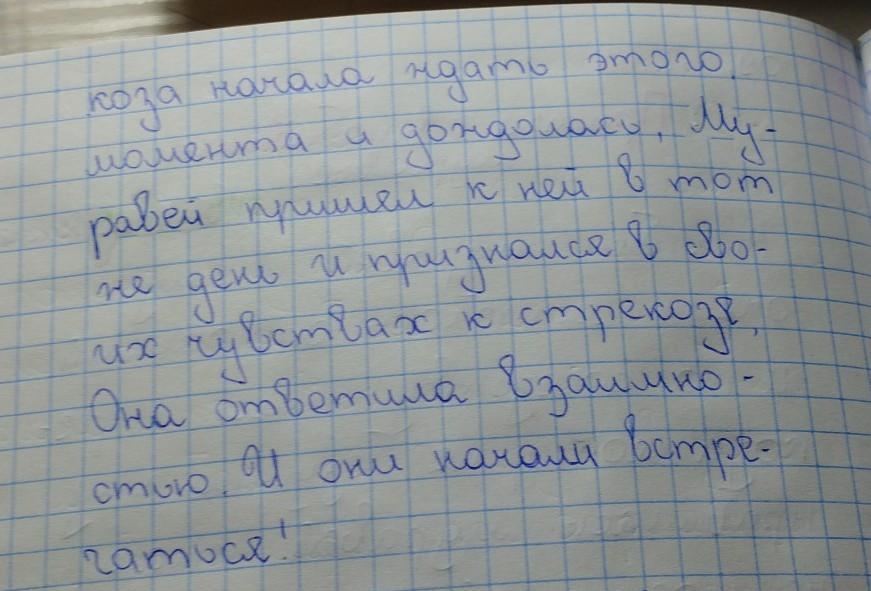 коза начала ждать этого
момента и дождолась. Му-
равей пришел к ней в тот
же день и признался в сво-
их чувствах к стрекозе.
Она ответила взаимно-
стью. И они начали встре-
чаться!